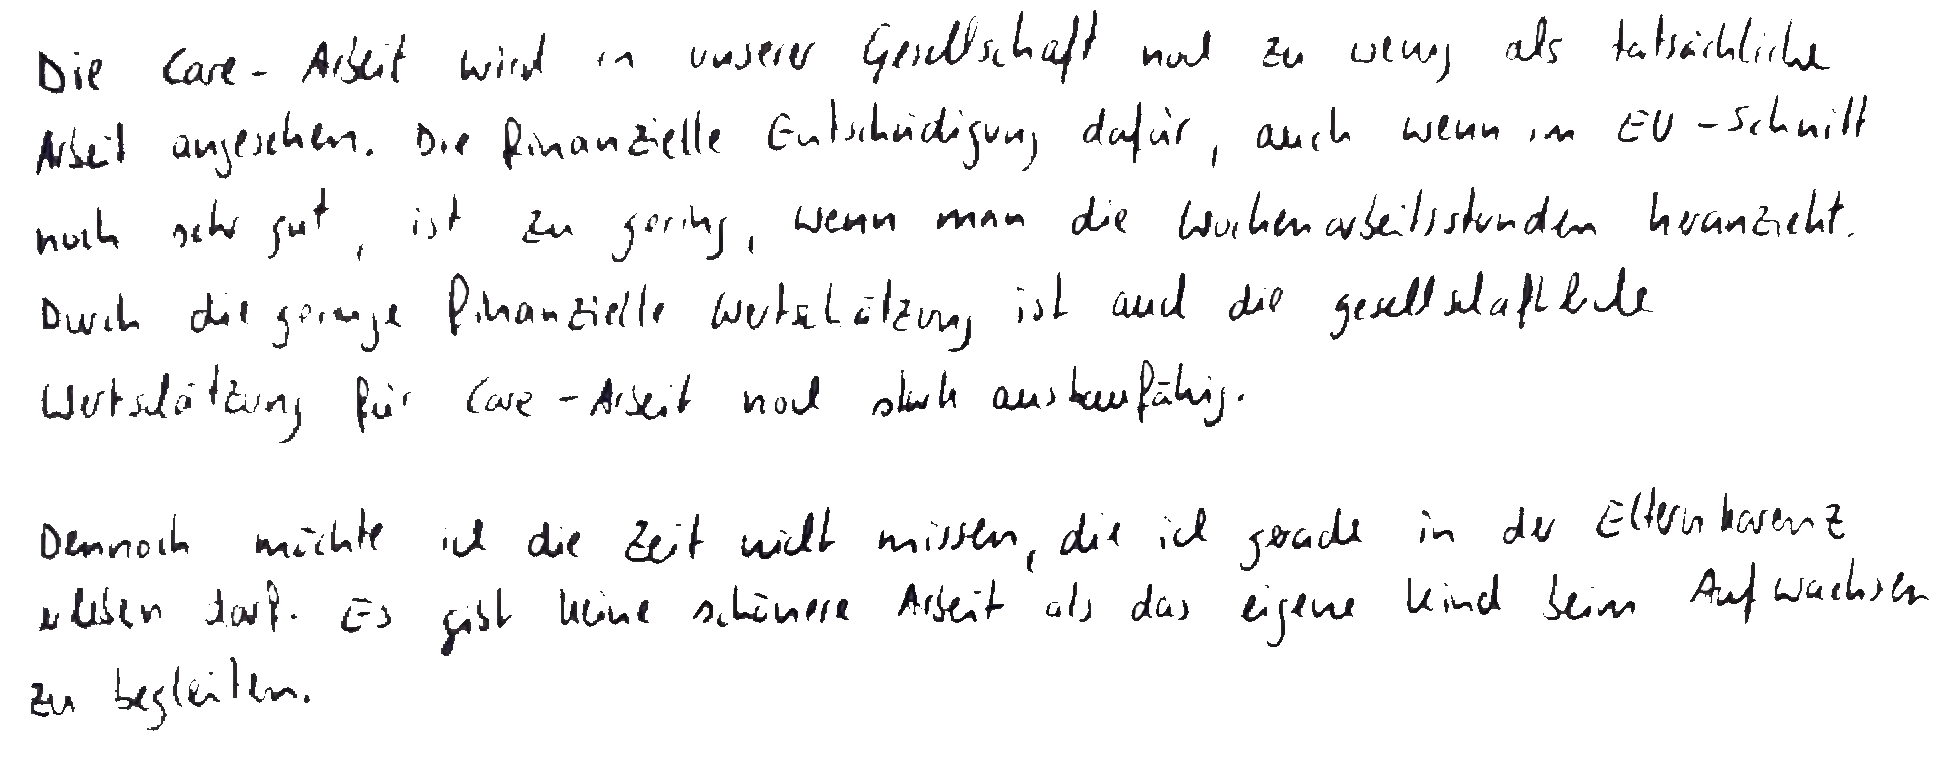 Die Care-Arbeit wird in unserer Gesellschaft noch zu wenig als tatsächliche
Arbeit angesehen. Die finanzielle Entschädigung dafür, auch wenn im EU-Schnitt
noch sehr gut, ist zu gering, wenn man die Wochenarbeitsstunden heranzieht.
Durch die geringe finanzielle Wertschätzung ist auch die gesellschaftliche
Wertschätzung für Care-Arbeit noch stark ausbaufähig.
Dennoch möchte ich die Zeit nicht missen, die ich gerade in der Elternkarenz
erleben darf. Es gibt keine schönere Arbeit als das eigene Kind beim Aufwachsen
zu begleiten.